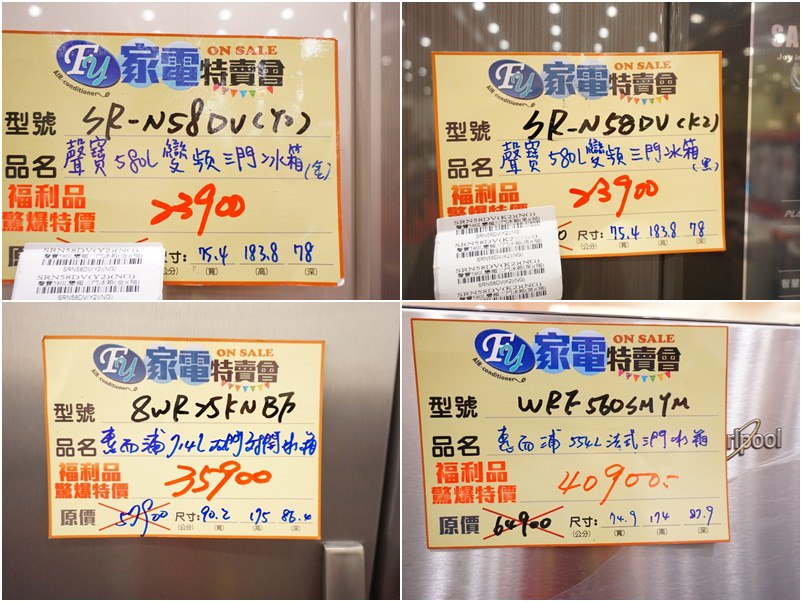 FY 家電特賣會 ON SALE
AIR-conditioner
型號 SR-N58DV(Y2)
品名 聲寶 580L 變頻三門冰箱(金)
福利品
驚爆特價 23900
原 尺寸: 75.4 183.8 78
(公分) (寬) (高) (深)
SRN58DV(Y2)(NG)
SRN58DV(Y2)(NG)
SRN58DV(Y2)(NG)
FY 家電特賣會 ON SALE
AIR-conditioner
型號 SR-N58DV(K2)
品名 聲寶 580L 變頻三門冰箱(黑)
福利品
驚爆特價 23900
尺寸: 75.4 183.8 78
(公分) (寬) (高) (深)
SRN58DV(K2)(NG)
SRN58DV(K2)(NG)
SRN58DV(K2)(NG)
SRN58DV(K2)(NG)
SA
Joy i
FY 家電特賣會 ON SALE
AIR-conditioner
型號
品名 惠而浦 對開冰箱
福利品
驚爆特價 35900
原價 57900 尺寸: 90.2 175
(公分) (寬) (高) (深)
FY 家電特賣會 ON SALE
AIR-conditioner
型號 WRF560SMYM
品名 惠而浦 554L 法式三門冰箱
福利品
驚爆特價 40900.-
原價 64900 尺寸: 74.9 174 87.9
(公分) (寬) (高) (深)
rlpool